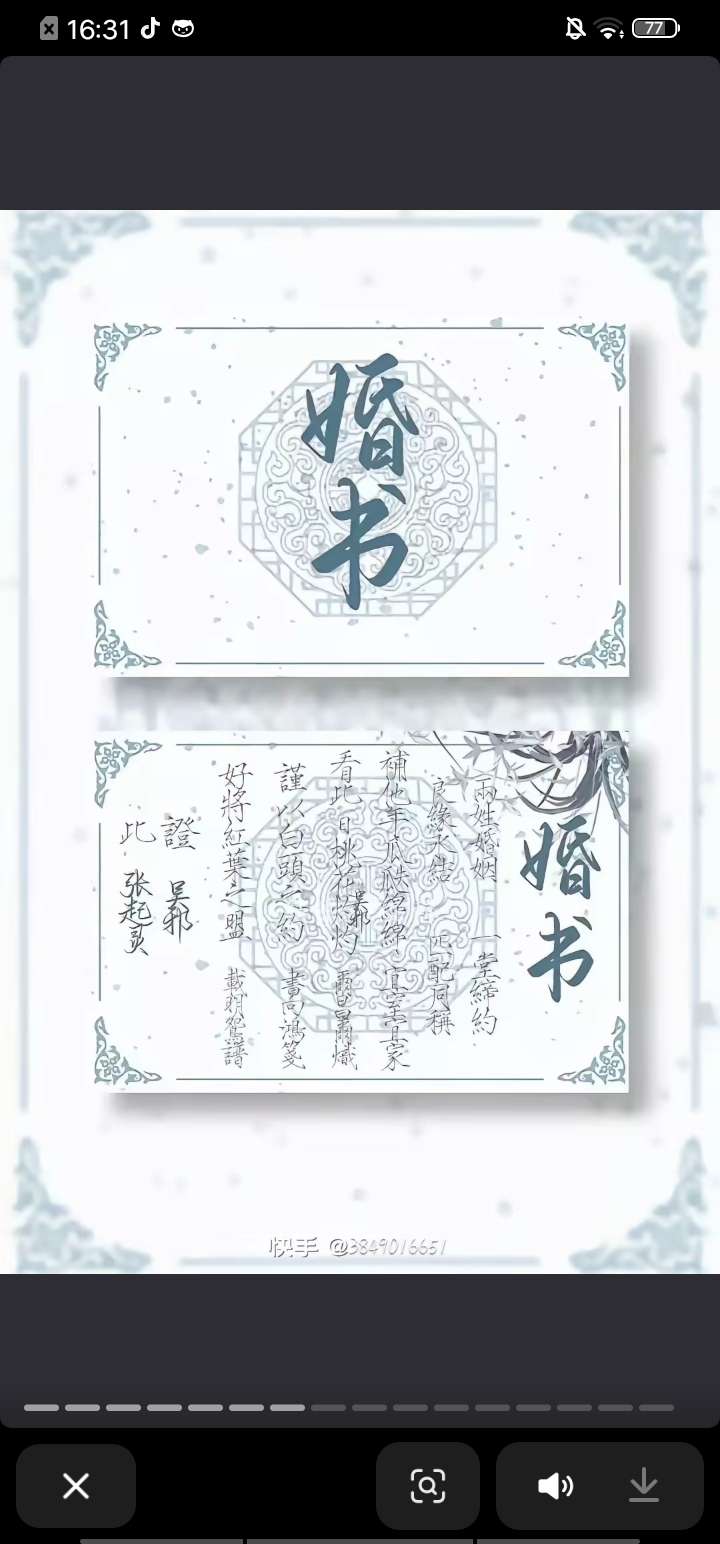 16:31
77
婚书
婚书
兩姓婚姻 一堂締約
良緣永結 匹配同稱
看此日桃花灼灼 宜室宜家
補他年瓜瓞綿綿 爾昌爾熾
謹以白頭之約 書向鴻箋
好將紅葉之盟 載明鴛譜
此證
吴邪
张起灵
吴邪
快手 @3849016651